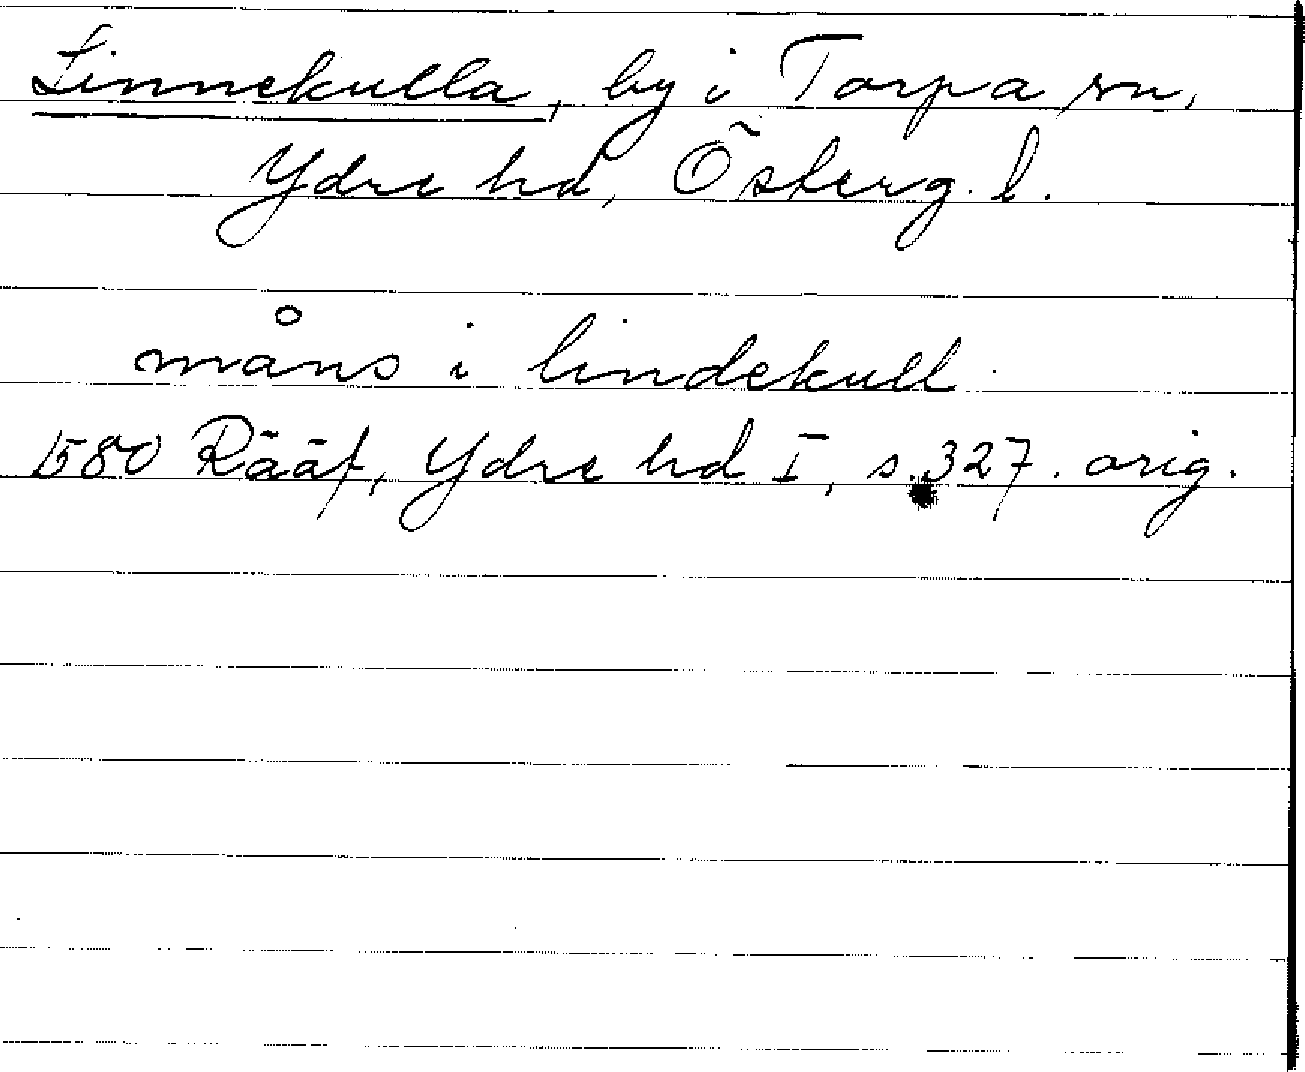 Linnekulla, by i Torpa sn,
Ydre hd, Österg. l.
måns i lindekull
1580 Rääf, Ydre hd I, s. 327. orig.